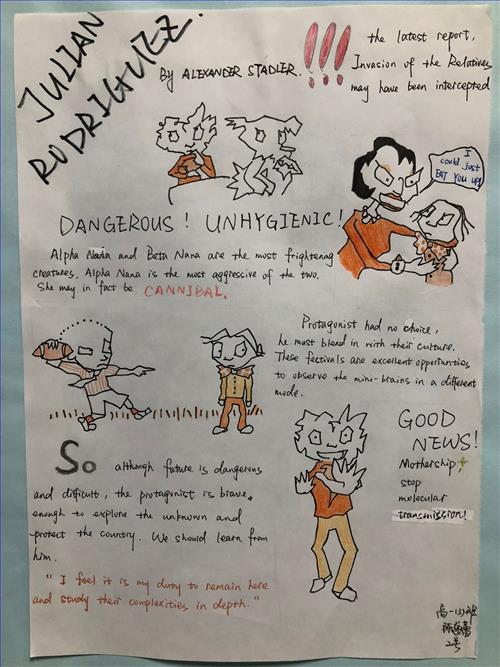 JULIAN
RODRIGUEZ.
By ALEXANDER STADLER.
!!!
the latest report,
Invasion of the Relatives
may have been intercepted
I
could just
EAT YOU UP!
DANGEROUS! UNHYGIENIC!
Alpha Nana and Beta Nana are the most frightening
creatures. Alpha Nana is the most aggressive of the two.
She may in fact be CANNIBAL.
Protagonist had no choice,
he must blend in with their culture.
These festivals are excellent opportunities
to observe the mini-brains in a different
mode.
GOOD
NEWS!
Mothership,
stop
molecular
transmission!
So although future is dangerous
and difficult, the protagonist is brave
enough to explore the unknown and
protect the country. We should learn from
him.
"I feel it is my duty to remain here
and study their complexities in depth."
高一(5)班
2号